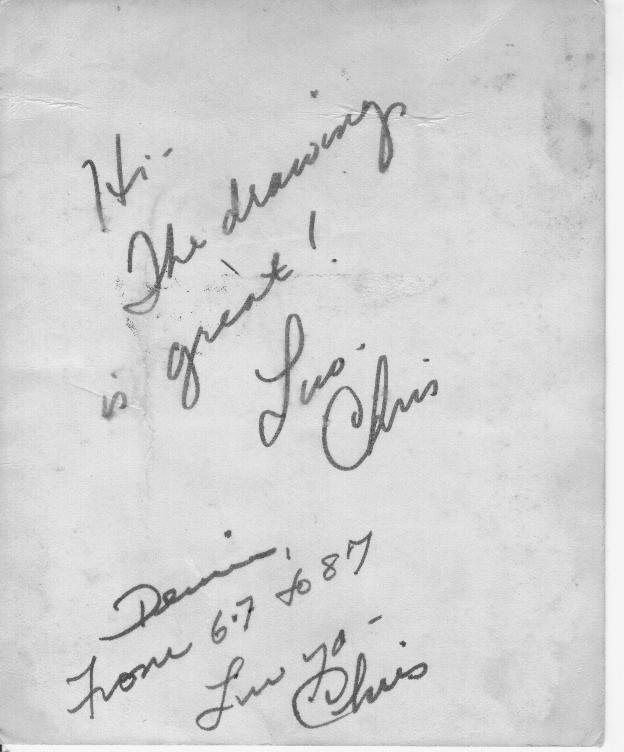 Hi-
The drawing
is great!
Luv.
Chris
Dennis,
From 67 to 87
Luv ya -
Chris